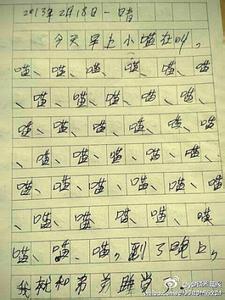 2013年2月18日 一 晴
今天早上小喵在叫,
喵、喵、喵、喵、喵、喵
、喵、喵、喵、喵、喵、
喵、喵、喵、喵、喵、喵
、喵、喵、喵、喵、喵、
喵、喵、喵、喵、喵、喵
、喵、喵、喵、喵、喵
喵、喵、喵,到了晚上,
我就和弟弟睡觉